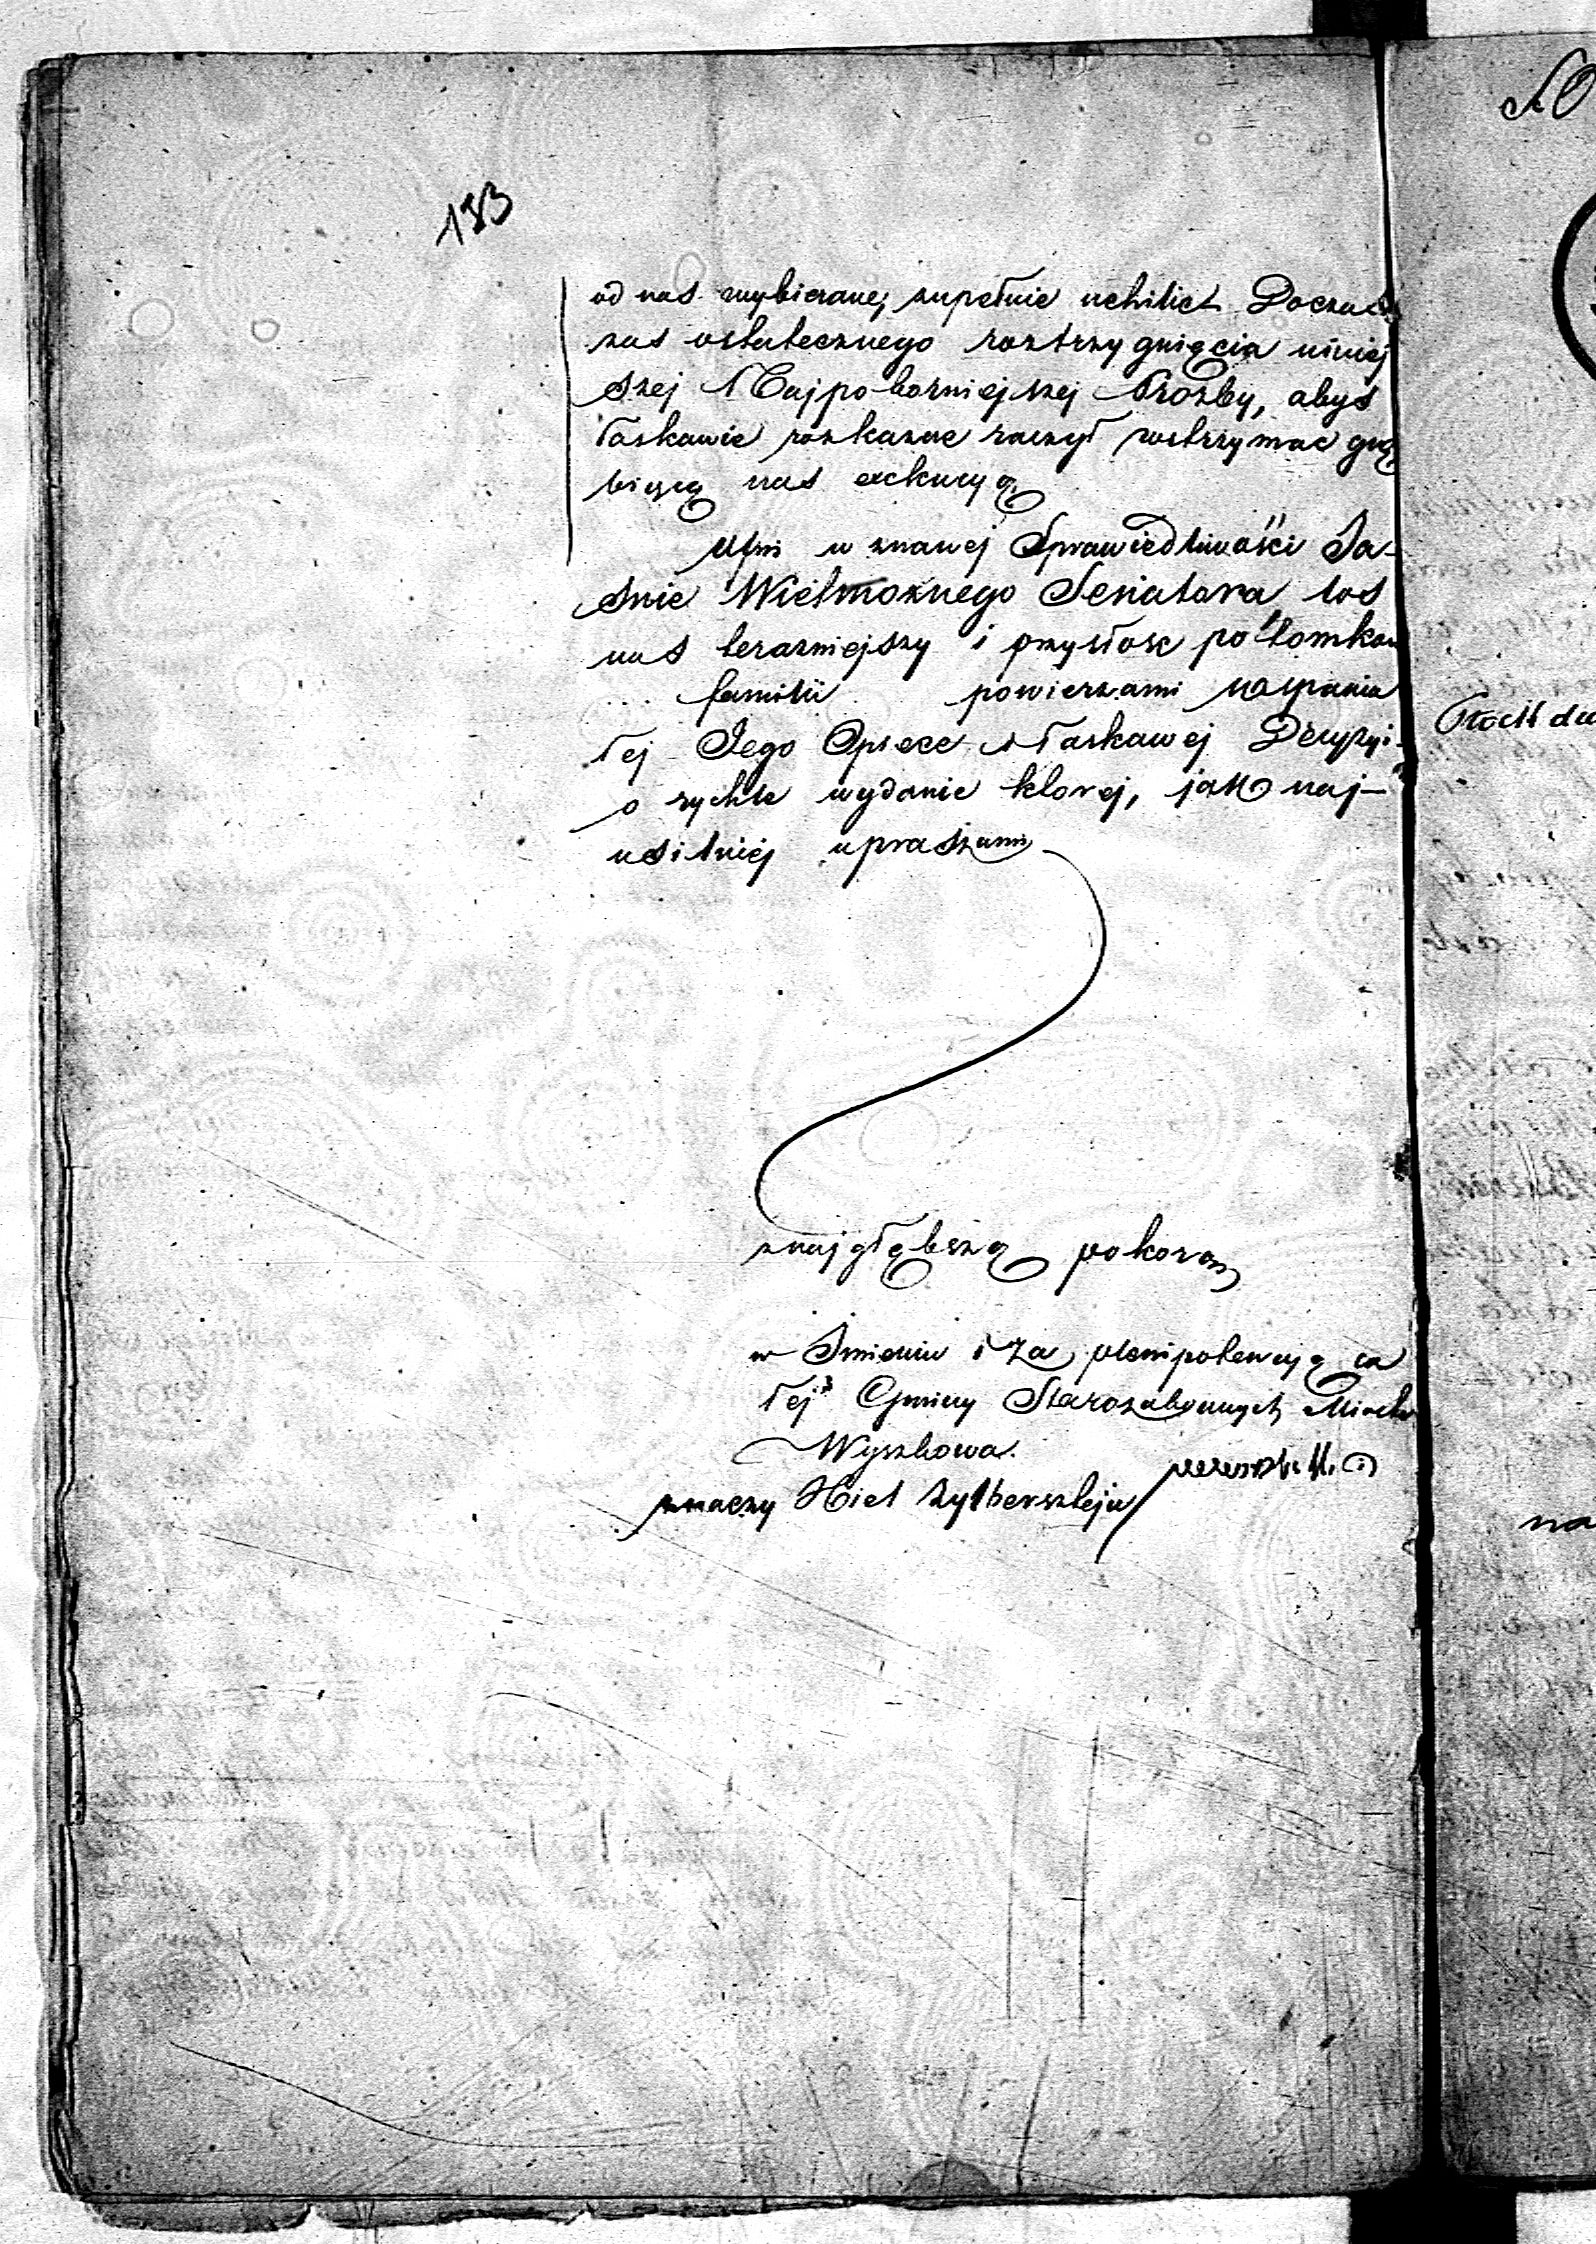 183
od nas wybierane, zupełnie uchilic. Doczas
zas ostatecznego roztrzygnięcia niniej
szej Najpo-korniejszej Prozby, abys
łaskawie rozkazac raczył wstrzymac gnę
biącą nas exekucyą
Ufni w znanej Sprawiedliwości Ja-
snie Wielmoznego Senatora, los
nas terazniejszy i przyszłosc potomkow
... familii powierzami wspania
łej Jego Opiece i łaskawej Decyzyi
o rychłe wydanie ktorej, jak naj-
usilniej upraszami
z najgłębszą pokorą
w Imieniu i Za plenipotencyą ca
łej Gminy Starozakonnych Miasta
Wyszkowa.
znaczy Hiel Zylbersztejn